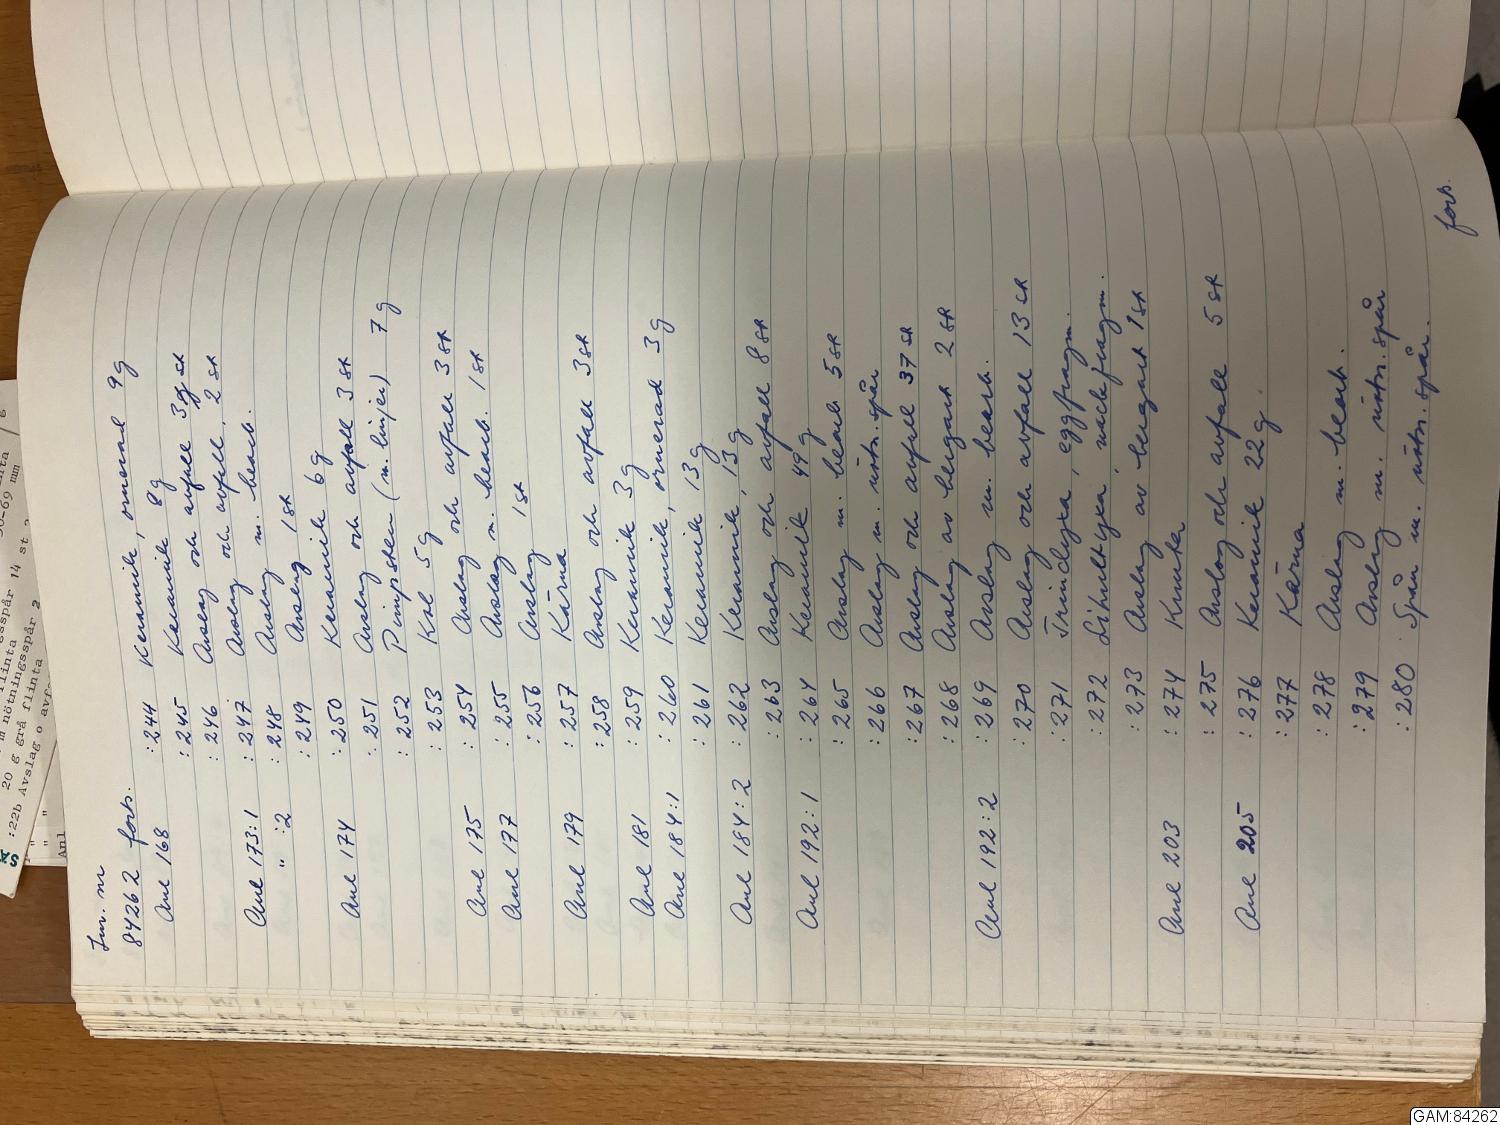 Inv. nr
84262 forts.
Anl 168 :244 Keramik, ornerad 9g
:245 Keramik 8g
:246 Avslag och avfall 3 st
:247 Avslag och avfall, 2 st
Anl 173:1 :248 Avslag m. bearb.
" :2 :249 Avslag 1 st
:250 Keramik 6g
Anl 174 :251 Avslag och avfall 3 st
:252 Pimpsten (m. linjer) 7g
:253 Kol 5g
:254 Avslag och avfall 3 st
Anl 175 :255 Avslag m. bearb. 1 st
Anl 177 :256 Avslag 1 st
:257 Kärna
Anl 179 :258 Avslag och avfall 3 st
:259 Keramik 3g
Anl 181 :260 Keramik, ornerad 3g
Anl 184:1 :261 Keramik 13g
:262 Keramik, 13g
Anl 184:2 :263 Avslag och avfall 8 st
:264 Keramik 49g
Anl 192:1 :265 Avslag m. bearb 5 st
:266 Avslag m. nötn.spår
:267 Avslag och avfall 37 st
:268 Avslag av bergart 2 st
:269 Avslag m. bearb.
Anl 192:2 :270 Avslag och avfall 13 st
:271 Trindyxa, eggfragm.
:272 Lihultyxa, nackfragm.
:273 Avslag av bergart 1 st
:274 Knacka
Anl 203 :275 Avslag och avfall 5 st
:276 Keramik 22g.
Anl 205 :277 Kärna
:278 Avslag m. bearb.
:279 Avslag m. nötn.spår
:280 Spån m. nötn.spår.
forts.
20 g grå flinta
m nötningsspår 2
:22b Avslag o avf
flinta 14 st
50-69 mm
Anl
GAM:84262